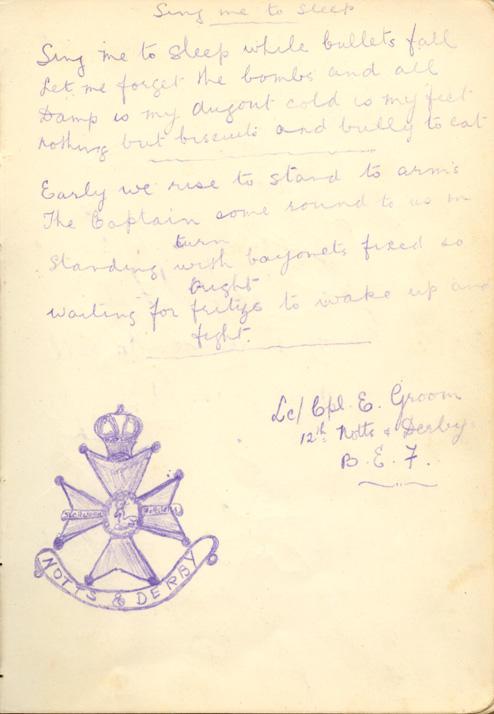 Sing me to sleep
Sing me to sleep while bullets fall
Let me forget the bombs and all
Damp is my dugout cold is my feet
Nothing but biscuits and bully to eat
Early we rise to stand to arms
The Captain come round to us in
turn
Standing with bayonets fixed so
bright
waiting for fritzs to wake up and
fight.
Lc/ Cpl. E. Groom
12th Notts & Derby
B. E. F.
NOTTS & DERBY